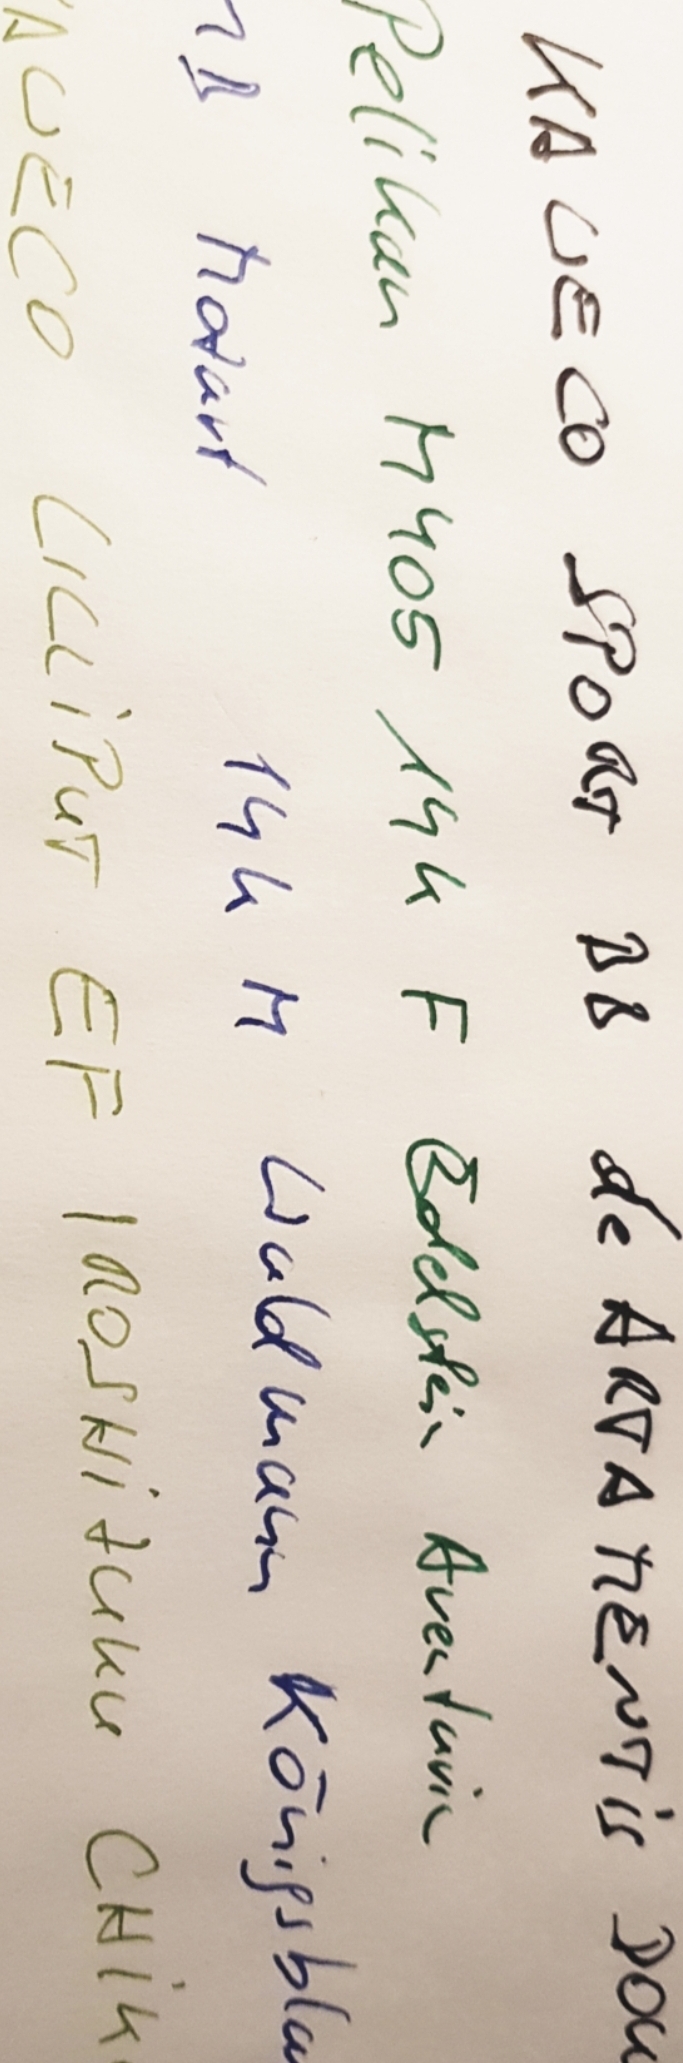 KAWECO SPORT BB de ARTAMENTIS DOU
Pelikan M405 14k F Edelstein Aventurin
MB Mozart 14k M Waldmann Königsblau
KAWECO LILLIPUT EF IROSHIZUKU CHIK